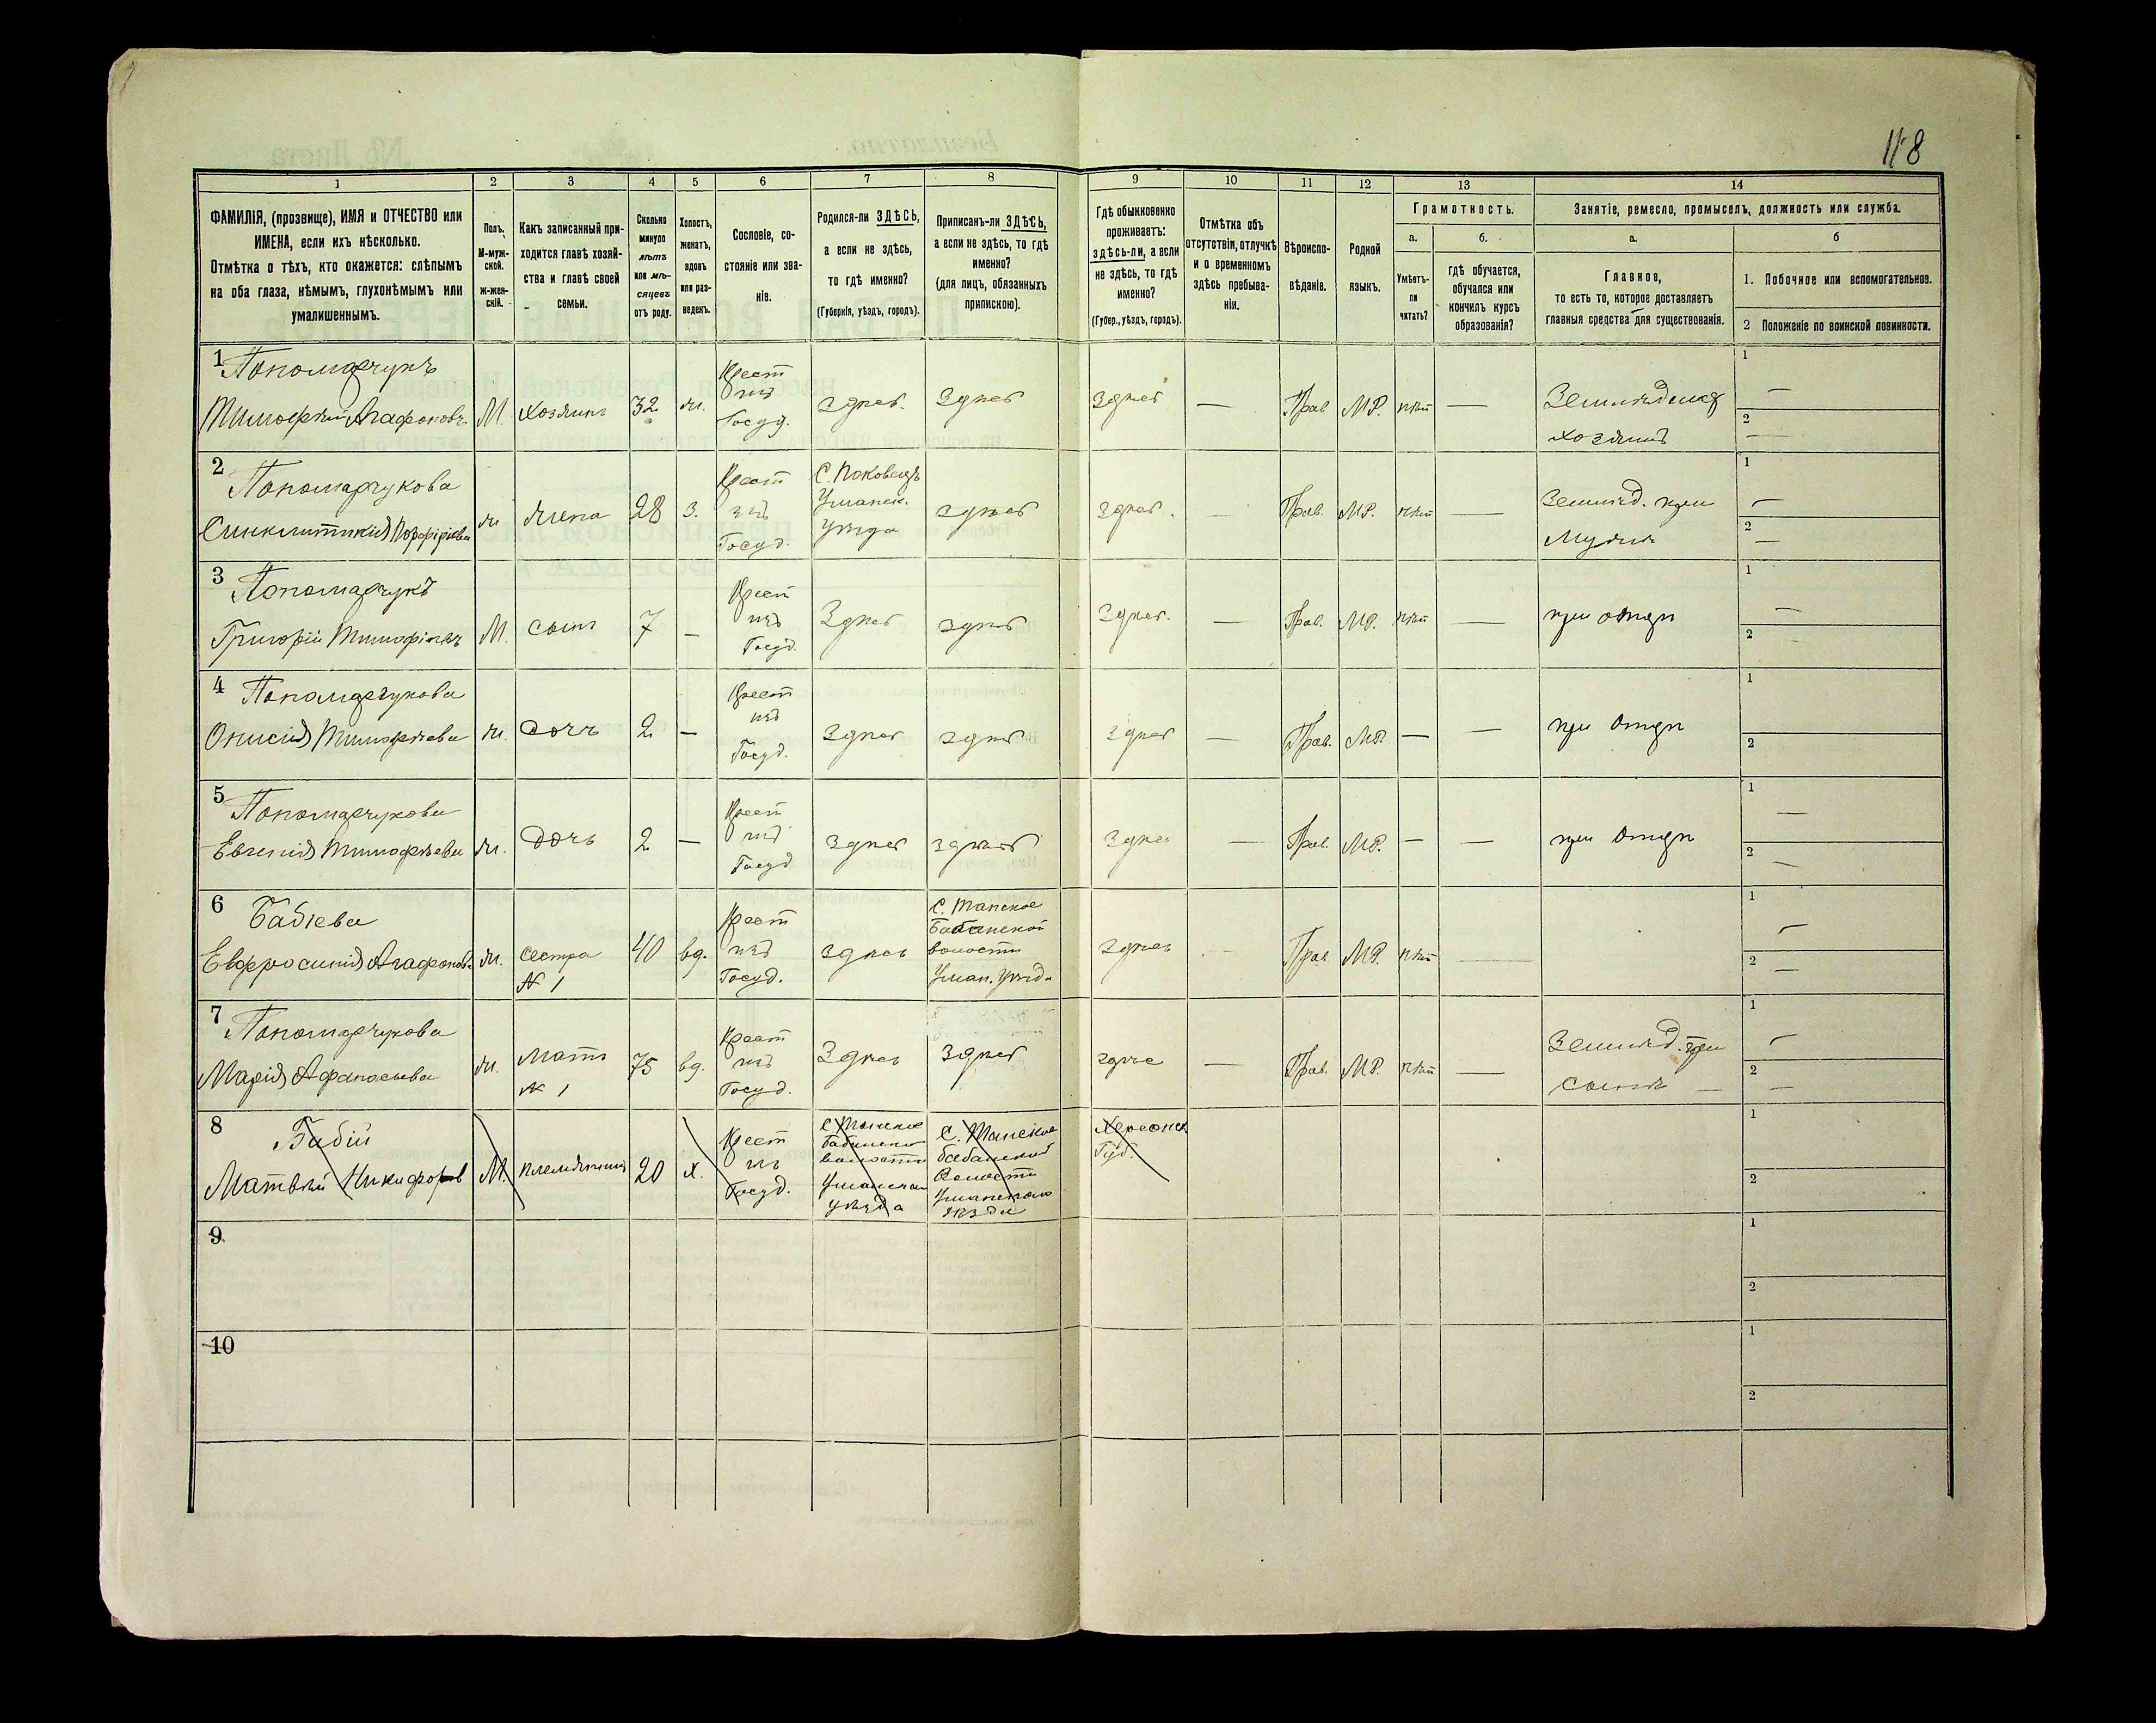 118
1 2 3 4 5 6 7 8 9 10 11 12 13 14
ФАМИЛІЯ, (прозвище), ИМЯ и ОТЧЕСТВО или
ИМЕНА, если ихъ нѣсколько.
Отмѣтка о тѣхъ, кто окажется: слѣпымъ
на оба глаза, нѣмымъ, глухонѣмымъ или
умалишеннымъ.
Полъ.
М-муж-
ской.
ж-жен-
скій.
Какъ записанный при-
ходится главѣ хозяй-
ства и главѣ своей
семьи.
Сколько
минуло
лѣтъ
или мѣ-
сяцевъ
отъ роду.
Холостъ,
женатъ,
вдовъ
или раз-
веденъ.
Сословіе, со-
стояніе или зва-
ніе.
Родился-ли ЗДѢСЬ,
а если не здѣсь,
то гдѣ именно?
(Губернія, уѣздъ, городъ).
Приписанъ-ли ЗДѢСЬ,
а если не здѣсь, то гдѣ
именно?
(для лицъ, обязанныхъ
припискою).
Гдѣ обыкновенно
проживаетъ:
здѣсь-ли, а если
не здѣсь, то гдѣ
именно?
(Губер., уѣздъ, городъ).
Отмѣтка объ
отсутствіи, отлучкѣ
и о временномъ
здѣсь пребыва-
ніи.
Вѣроиспо-
вѣданіе.
Родной
языкъ.
Грамотность.
а.
Умѣетъ-
ли
читать?
б.
гдѣ обучается,
обучался или
кончилъ курсъ
образованія?
Занятіе, ремесло, промыселъ, должность или служба.
а.
Главное,
то есть то, которое доставляетъ
главныя средства для существованія.
б
1. Побочное или вспомогательное.
2 Положеніе по воинской повинности.
1 Пономарчукъ
Тимофѣй Агафоновъ
М. хозяинъ 32 ж.
Крест
изъ
Госуд.
Здѣсь. Здѣсь Здѣсь — Прав МР. нѣт —
Земледѣлец
хозяинъ
1 —
2 —
2 Пономарчукова
Синклитикія Порфирієва
ж жена 28 З.
Крест
изъ
Госуд.
Уманск.
уѣзда
здѣсь здѣсь. — Прав. МР. нѣт —
Земляд. при
Мужѣ
1 —
2 —
3 Пономарчукъ
Григорій Тимофѣевъ
М. сынъ 7 —
Крест
изъ
Госуд.
Здѣсь здѣсь Здѣсь. — Прав. МР. нѣт —
при отцѣ
1 —
2
4 Пономарчукова
Онисія Тимофѣева
ж. дочь 2 —
Крест
изъ
Госуд.
Здѣсь здѣсь здѣсь — Прав. МР. — —
при Отцѣ
1
2
5 Пономарчукова
Евгенія Тимофѣева
ж. дочь 2 —
Крест
изъ
Госуд
Здѣсь здѣсь Здѣсь — Прав. МР. — —
при Отцѣ
1 —
2 —
6 Бабієва
Евфросинія Агафонова
ж. сестра
№ 1
40 вд.
Крест
изъ
Госуд.
здѣсь
С. Танское
Бабанской
волости
Уман. уѣзда
здѣсь — Прав МР. нѣт —
1 —
2 —
7 Пономарчукова
Марія Афанасьева
ж. Мать
№ 1
75 вд.
Крест
изъ
Госуд.
Здѣсь Здѣсь здѣсь — Прав. МР. нѣт —
Земляд. при
сынѣ —
1 —
2 —
8 Бабій
Матвѣй Никифоров
М. племянникъ 20 х.
Крест
изъ
Госуд.
С Танское
Бабанской
волости
Уманскаго
уѣзда
С. Танское
Бабанской
Волости
Уманскаго
уѣзда
Херсонск
Губ.
1
2
9
1
2
10
1
2